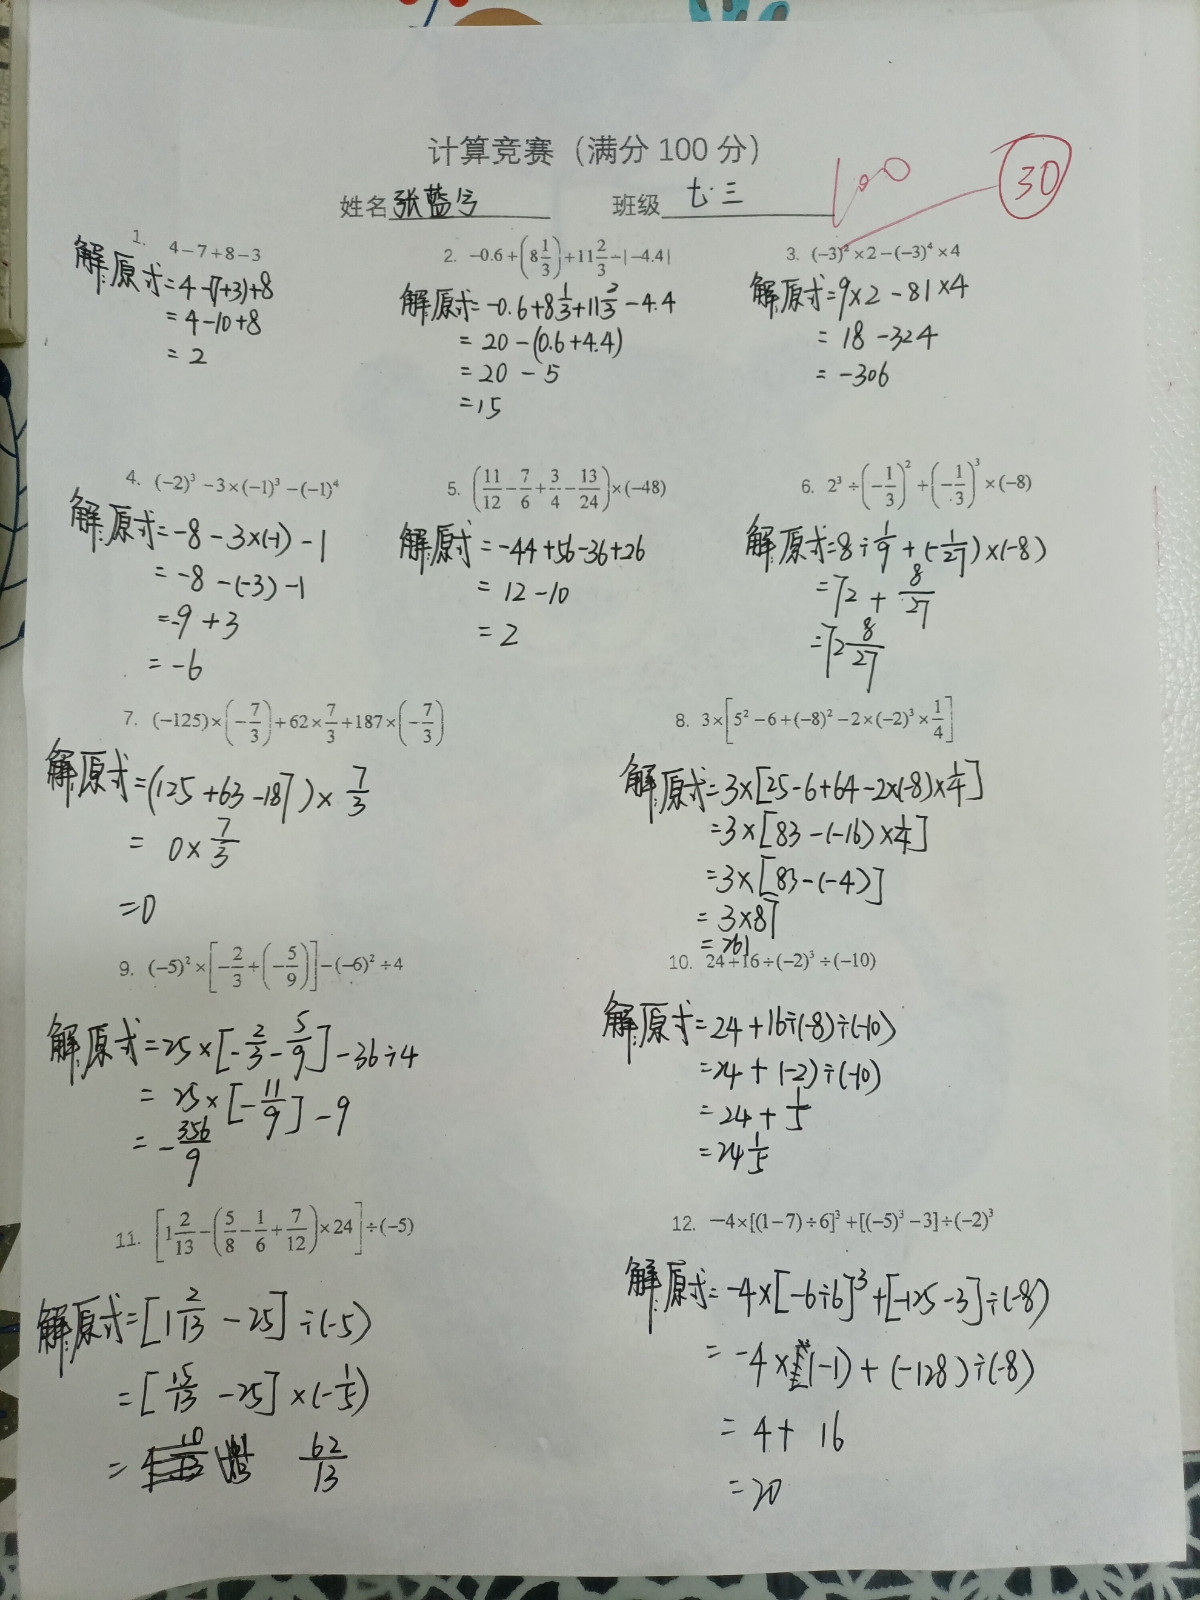 计算竞赛（满分 100 分）
100
30
姓名 张蓝兮 班级 七.三
1. 4－7＋8－3
解:原式=4-(7+3)+8
=4-10+8
=2
2. -0.6+(8 1/3)+11 2/3-|-4.4|
解:原式=-0.6+8 1/3+11 2/3-4.4
=20-(0.6+4.4)
=20-5
=15
3. (-3)²×2-(-3)⁴×4
解:原式=9×2-81×4
=18-324
=-306
4. (-2)³-3×(-1)³-(-1)⁴
解:原式=-8-3×(-1)-1
=-8-(-3)-1
=-9+3
=-6
5. (11/12-7/6+3/4-13/24)×(-48)
解:原式=-44+56-36+26
=12-10
=2
6. 2³÷(-1/3)²+(-1/3)³×(-8)
解:原式=8÷1/9+(-1/27)×(-8)
=72+8/27
=72 8/27
7. (-125)×(-7/3)+62×7/3+187×(-7/3)
解:原式=(125+63-187)×7/3
=0×7/3
=0
8. 3×[5²-6+(-8)²-2×(-2)³×1/4]
解:原式=3×[25-6+64-2×(-8)×1/4]
=3×[83-(-16)×1/4]
=3×[83-(-4)]
=3×87
=261
9. (-5)²×[-2/3+(-5/9)]-(-6)²÷4
解:原式=25×[-2/3-5/9]-36÷4
=25×[-11/9]-9
=-356/9
10. 24+16÷(-2)³÷(-10)
解:原式=24+16÷(-8)÷(-10)
=24+(-2)÷(-10)
=24+1/5
=24 1/5
11. [1 2/13-(5/8-1/6+7/12)×24]÷(-5)
解:原式=[1 2/13-25]÷(-5)
=[15/13-25]×(-1/5)
= 62/13
12. -4×[(1-7)÷6]³+[(-5)³-3]÷(-2)³
解:原式=-4×[-6÷6]³+[-125-3]÷(-8)
=-4×(-1)+(-128)÷(-8)
=4+16
=20